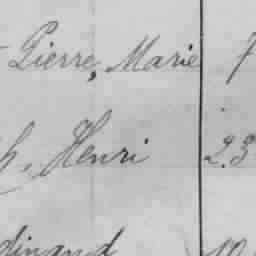 Pierre, Marie 7
h, Henri 23
dinand 19